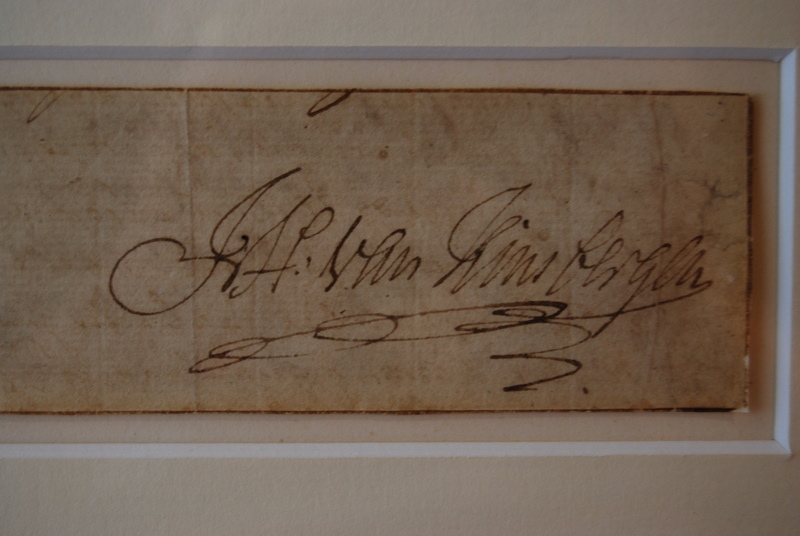 J H. van Kinsbergen